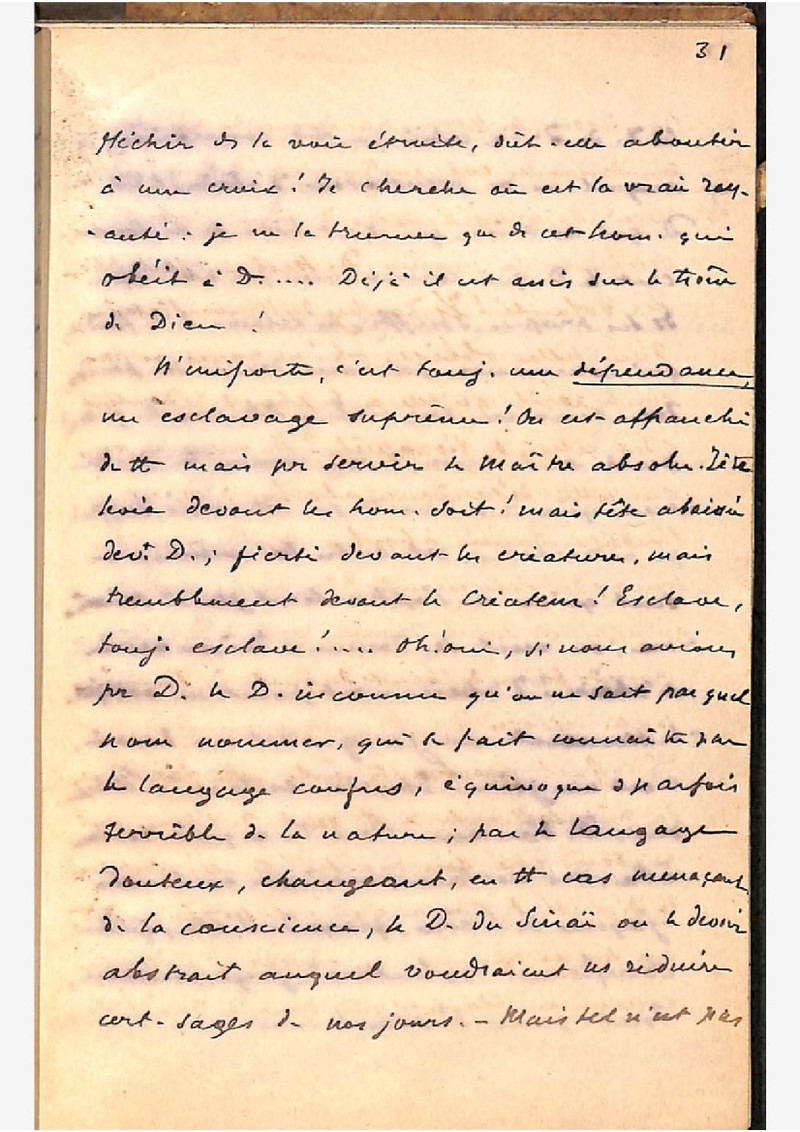 31
fléchir ds la voie étroite, dût-elle aboutir
à une croix ! Je cherche où est la vraie roy-
-auté : je ne la trouve que ds cet hom. qui
obéit à D. .... Déjà il est assis sur le trône
de Dieu !
N'importe, c'est touj. une dépendance,
un esclavage suprême ! On est affranchi
de tt mais pr servir le Maître absolu. Tête
levée devant les hom. soit ! mais tête abaissée
devt D. ; fierté devant les créatures, mais
tremblement devant le Créateur ! Esclave,
touj. esclave ! .... Oh! oui, si nous avions
pr D. le D. inconnu qu'on ne sait par quel
nom nommer, qui se fait connaître par
le langage confus, équivoque & parfois
terrible de la nature ; par le langage
douteux, changeant, en tt cas menaçant
de la conscience, le D. du Sinaï ou le devoir
abstrait auquel voudraient ns réduire
cert. sages de nos jours. - Mais tel n'est pas